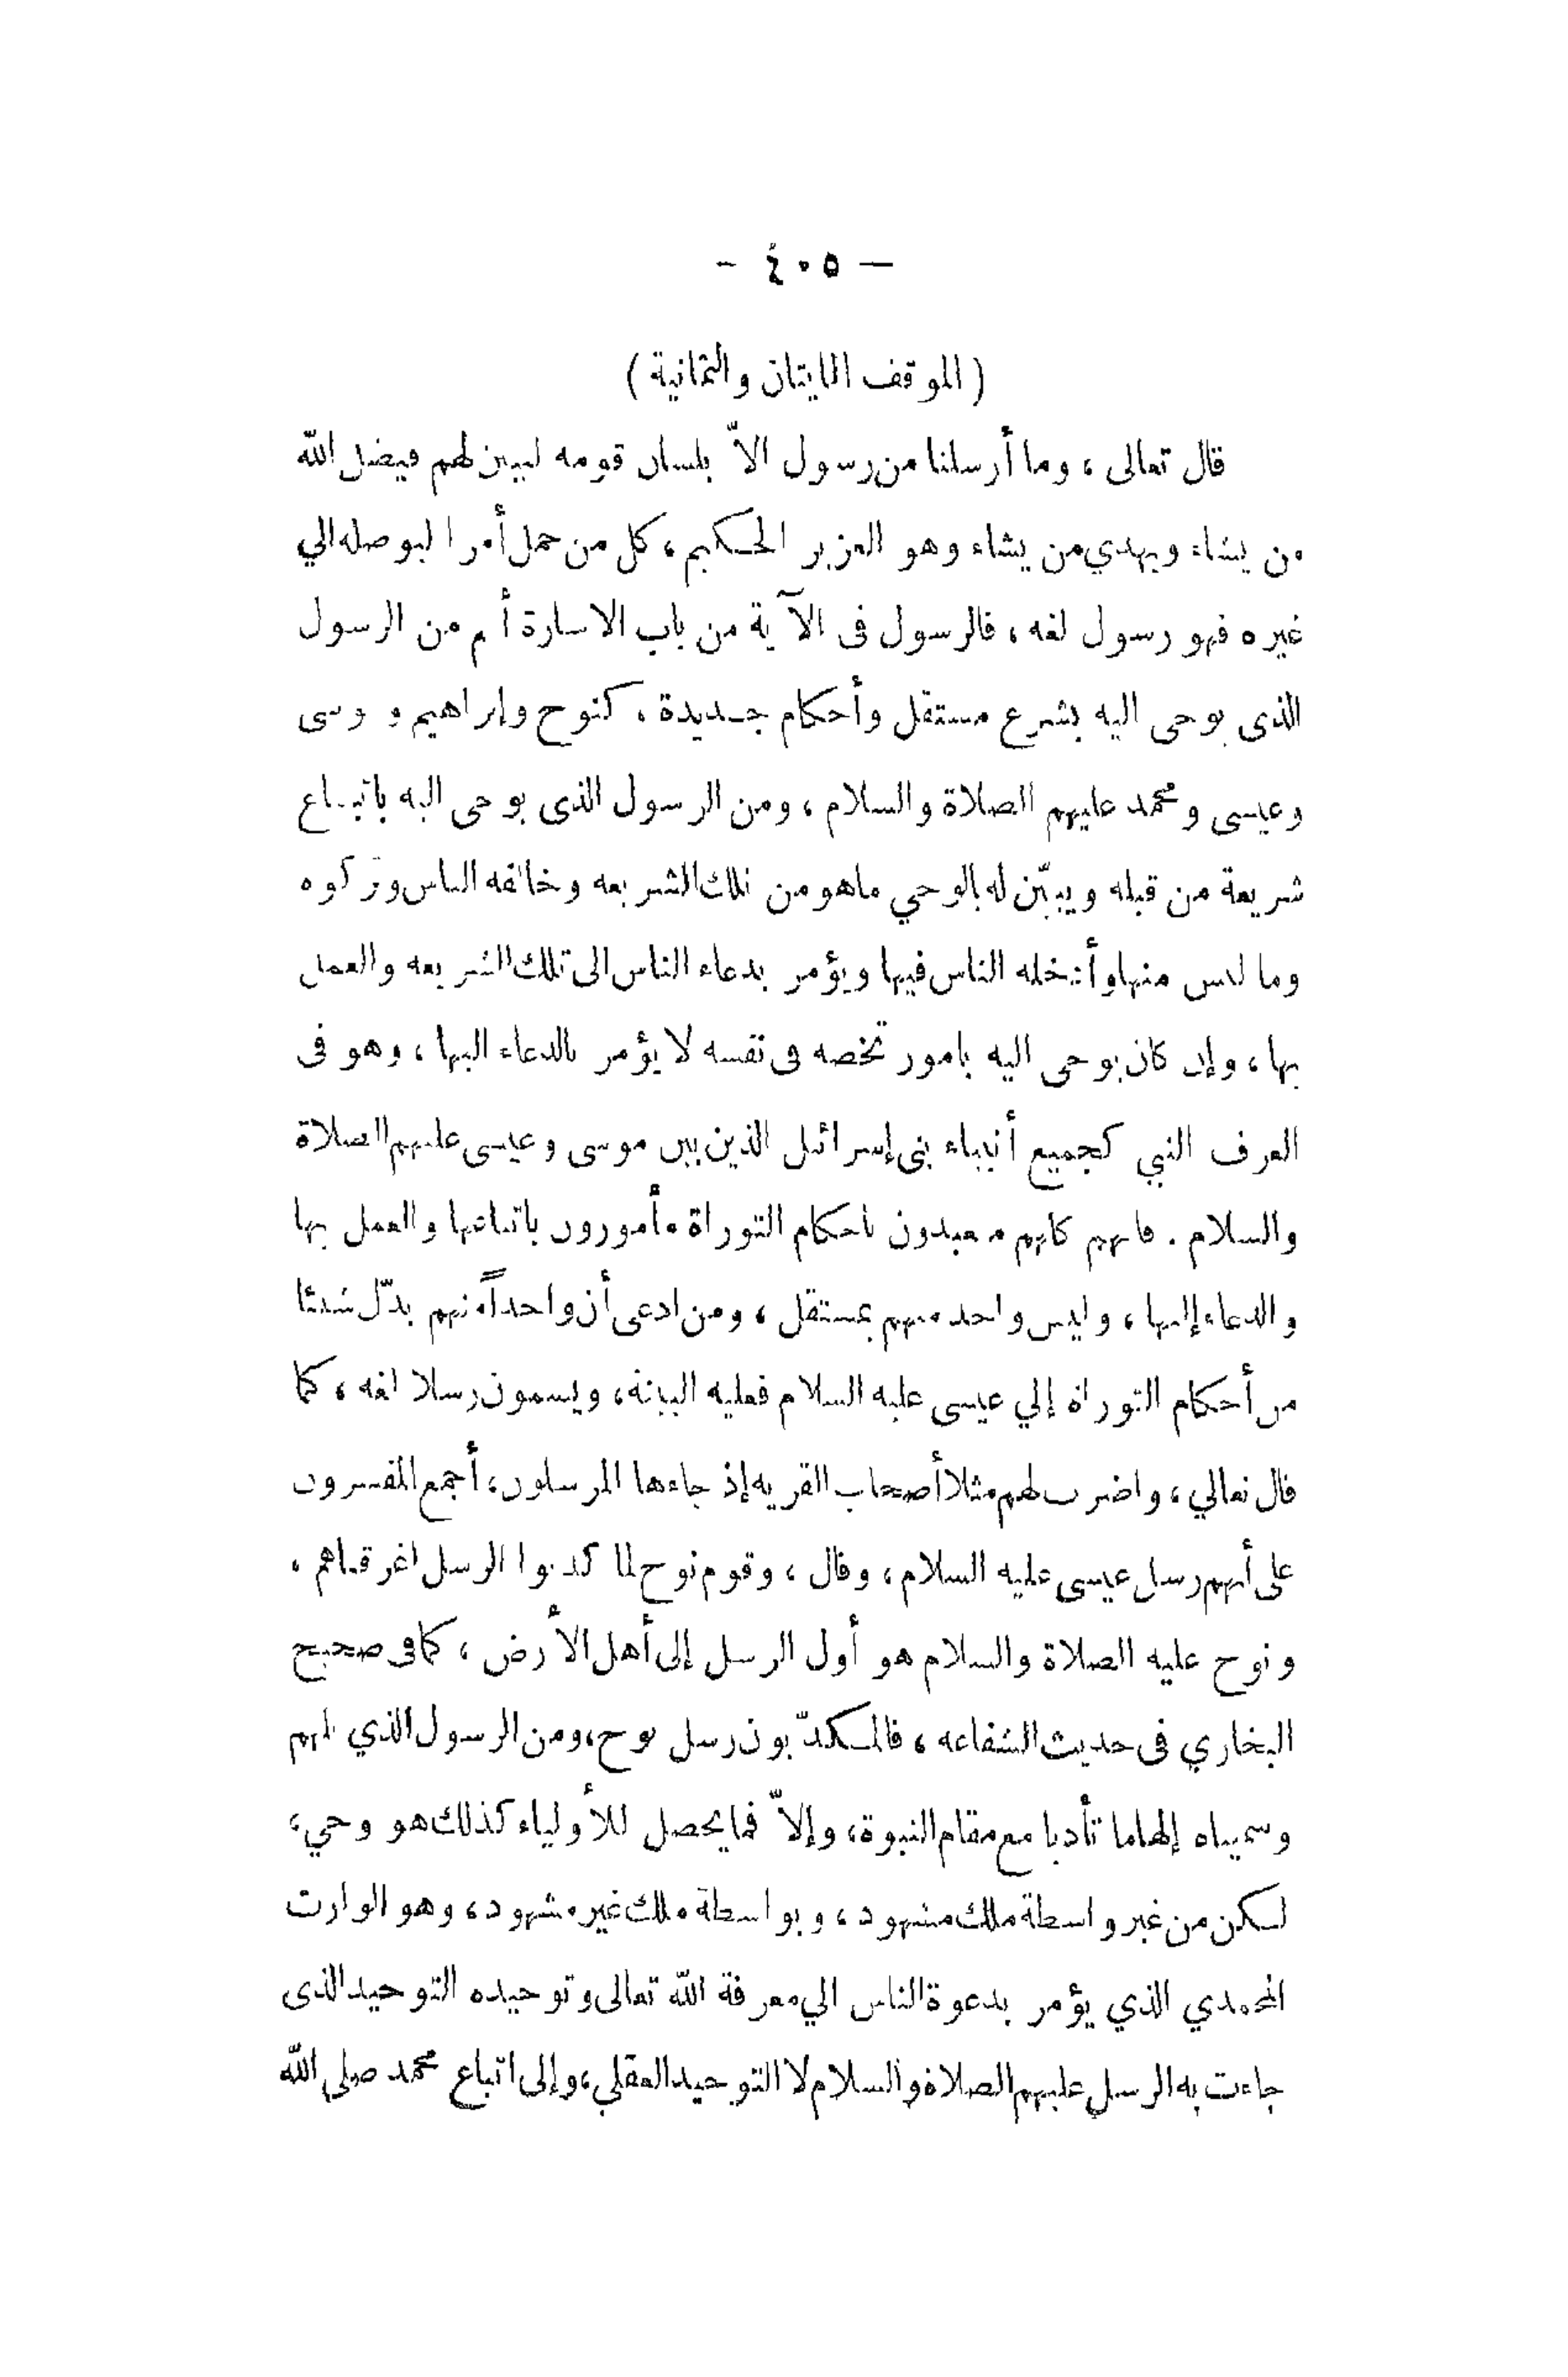 — ٤٠٥ —
( الموقف المايتان والثمانية )
قال تعالى ، وما أرسلنا من رسول الاّ بلسان قومه ليبين لهم فيضل الله
من يشاء ويهدي من يشاء وهو العزيز الحكيم ، كل من حمل أمرا ليوصله الي
غيره فهو رسول لغه ، فالرسول فى الآية من باب الاشارة أعم من الرسول
الذى يوحى اليه بشرع مستقل وأحكام جديدة ، كنوح وإبراهيم وموسى
وعيسى ومحمد عليهم الصلاة والسلام ، ومن الرسول الذى يوحى اليه باتباع
شريعة من قبله ويبيّن له بالوحي ماهو من تلك الشريعه وخالفه الناس وتركوه
وما ليس منها وأدخله الناس فيها ويؤمر بدعاء الناس الى تلك الشريعه والعمل
بها ، وإن كان يوحى اليه بامور تخصه فى نفسه لا يؤمر بالدعاء اليها ، وهو فى
العرف النبي كجميع أنبياء بنى إسرائيل الذين بين موسى وعيسى عليهم الصلاة
والسلام . فانهم كلهم متعبدون باحكام التوراة مأمورون باتباعها والعمل بها
والدعاء إليها ، وليس واحد منهم بمستقل ، ومن ادعى أن واحداً منهم بدّل شيئا
من أحكام التوراة إلي عيسى عليه السلام فعليه البينة ، ويسمون رسلا لغه ، كما
قال تعالي ، واضرب لهم مثلا أصحاب القريه إذ جاءها المرسلون ، أجمع المفسرون
على أنهم رسل عيسى عليه السلام ، وقال ، وقوم نوح لما كذبوا الرسل اغرقناهم ،
ونوح عليه الصلاة والسلام هو أول الرسل إلى أهل الأرض ، كما فى صحيح
البخاري فى حديث الشفاعه ، فالمكذّبون رسل نوح ، ومن الرسول الذي يلهم
وسميناه إلهاما تأدبا مع مقام النبوة ، وإلاّ فما يحصل للأولياء كذلك هو وحي ،
لكن من غير واسطة ملك مشهود ، وبواسطة ملك غير مشهود ، وهو الوارث
المحمدي الذي يؤمر بدعوة الناس الي معرفة الله تعالى وتوحيده التوحيد الذى
جاءت به الرسل عليهم الصلاة والسلام لا التوحيد العقلي ، وإلى اتباع محمد صلى الله